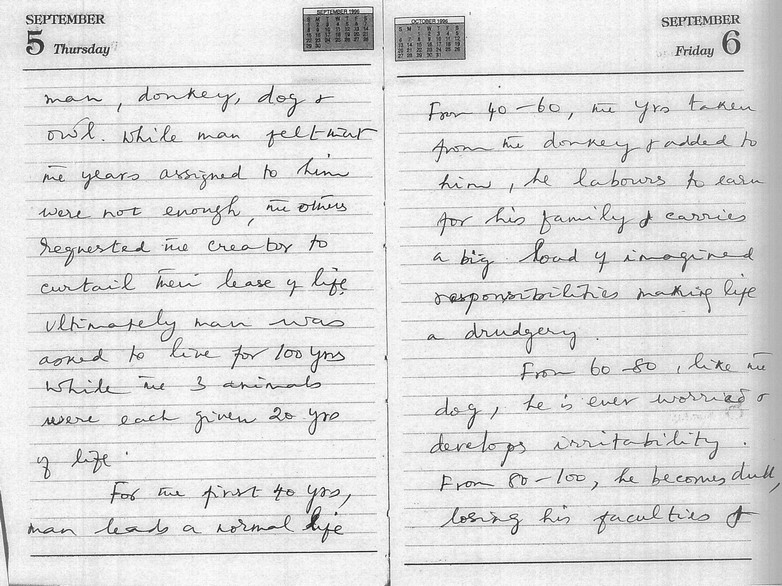 SEPTEMBER
5 Thursday
SEPTEMBER 1996
man, donkey, dog &
owl. While man felt that
the years assigned to him
were not enough, the others
requested the creator to
curtail their lease of life.
Ultimately man was
asked to live for 100 yrs
while the 3 animals
were each given 20 yrs
of life.
For the first 40 yrs,
man leads a normal life
OCTOBER 1996
SEPTEMBER
Friday 6
From 40-60, the yrs taken
from the donkey & added to
him, he labours to earn
for his family & carries
a big load of imagined
responsibilities making life
a drudgery.
From 60-80, like the
dog, he is ever worried &
develops irritability.
From 80-100, he becomes dull,
losing his faculties &